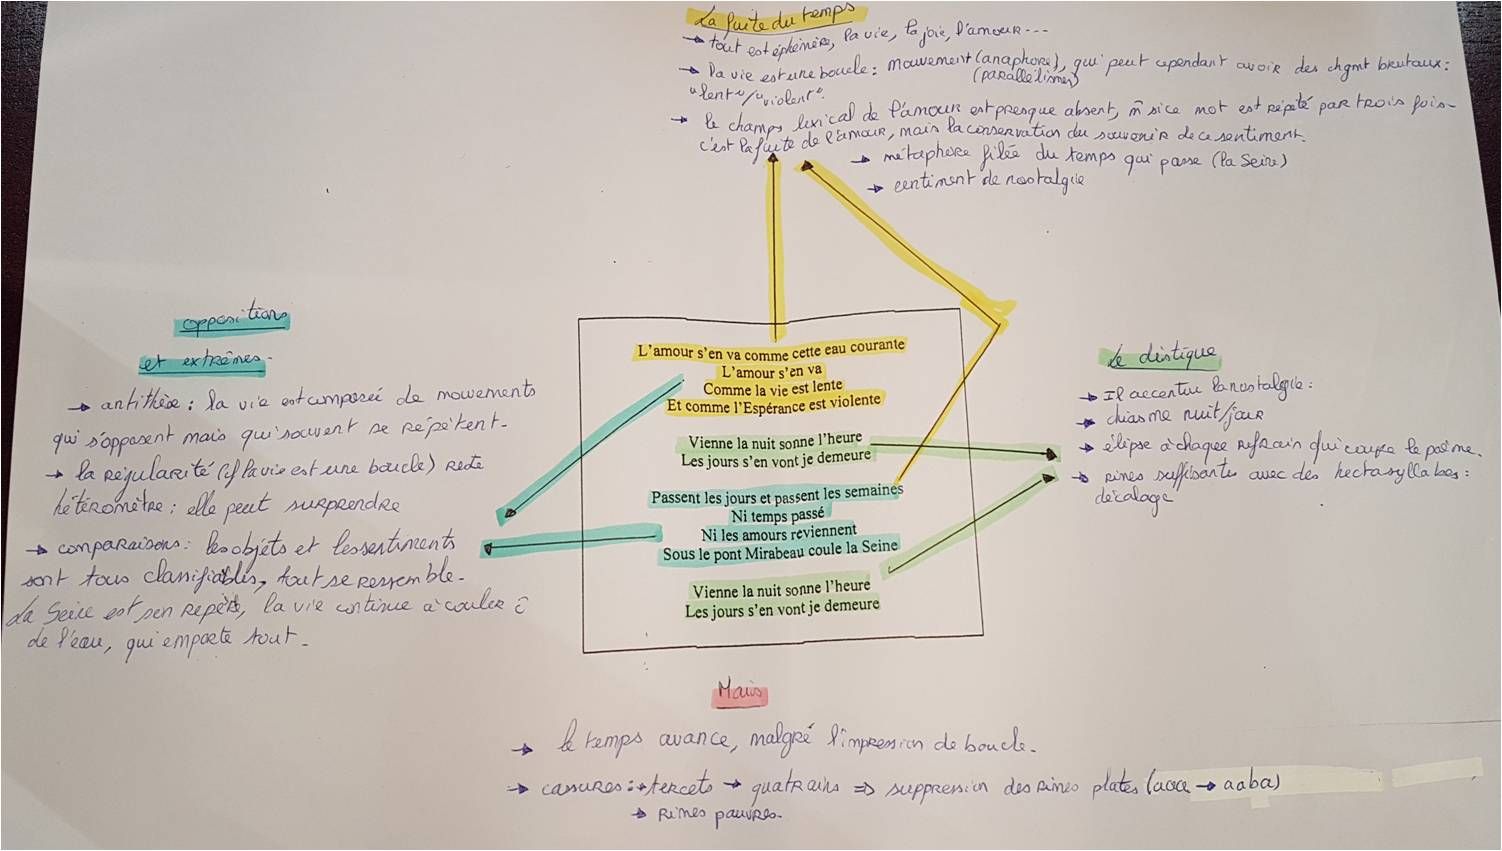 La fuite du temps
→ tout est éphémère, la vie, la joie, l'amour...
→ la vie est une boucle : mouvement (anaphore), qui peut cependant avoir des chgmt brutaux :
(parallélismes)
"lent"/"violent".
→ le champs lexical de l'amour est presque absent, m̂ si ce mot est répété par trois fois-
c'est la fuite de l'amour, mais la conservation du souvenir de ce sentiment.
→ métaphore filée du temps qui passe (la Seine)
→ sentiment de nostalgie
oppositions
et extrêmes-
→ antithèse : la vie est composée de mouvements
qui s'opposent mais qui souvent se répètent-
→ la régularité (cf la vie est une boucle) reste
hétéromètre : elle peut surprendre
→ comparaisons : les objets et les sentiments
sont tous classifiables, tout se ressemble-
La Seine est son repère, la vie continue à couler c̄
de l'eau, qui emporte tout-
L'amour s'en va comme cette eau courante
L'amour s'en va
Comme la vie est lente
Et comme l'Espérance est violente
Vienne la nuit sonne l'heure
Les jours s'en vont je demeure
Passent les jours et passent les semaines
Ni temps passé
Ni les amours reviennent
Sous le pont Mirabeau coule la Seine
Vienne la nuit sonne l'heure
Les jours s'en vont je demeure
Le distique
→ Il accentue la nostalgie :
→ chiasme nuit/jour
→ élipse à chaque refrain qui coupe le poème.
→ rimes suffisantes avec des hectasyllabes :
décalage
Mais
→ le temps avance, malgré l'impression de boucle-
→ cassures : → tercets → quatrains ⇒ suppression des rimes plates (aaa → aaba)
→ rimes pauvres-